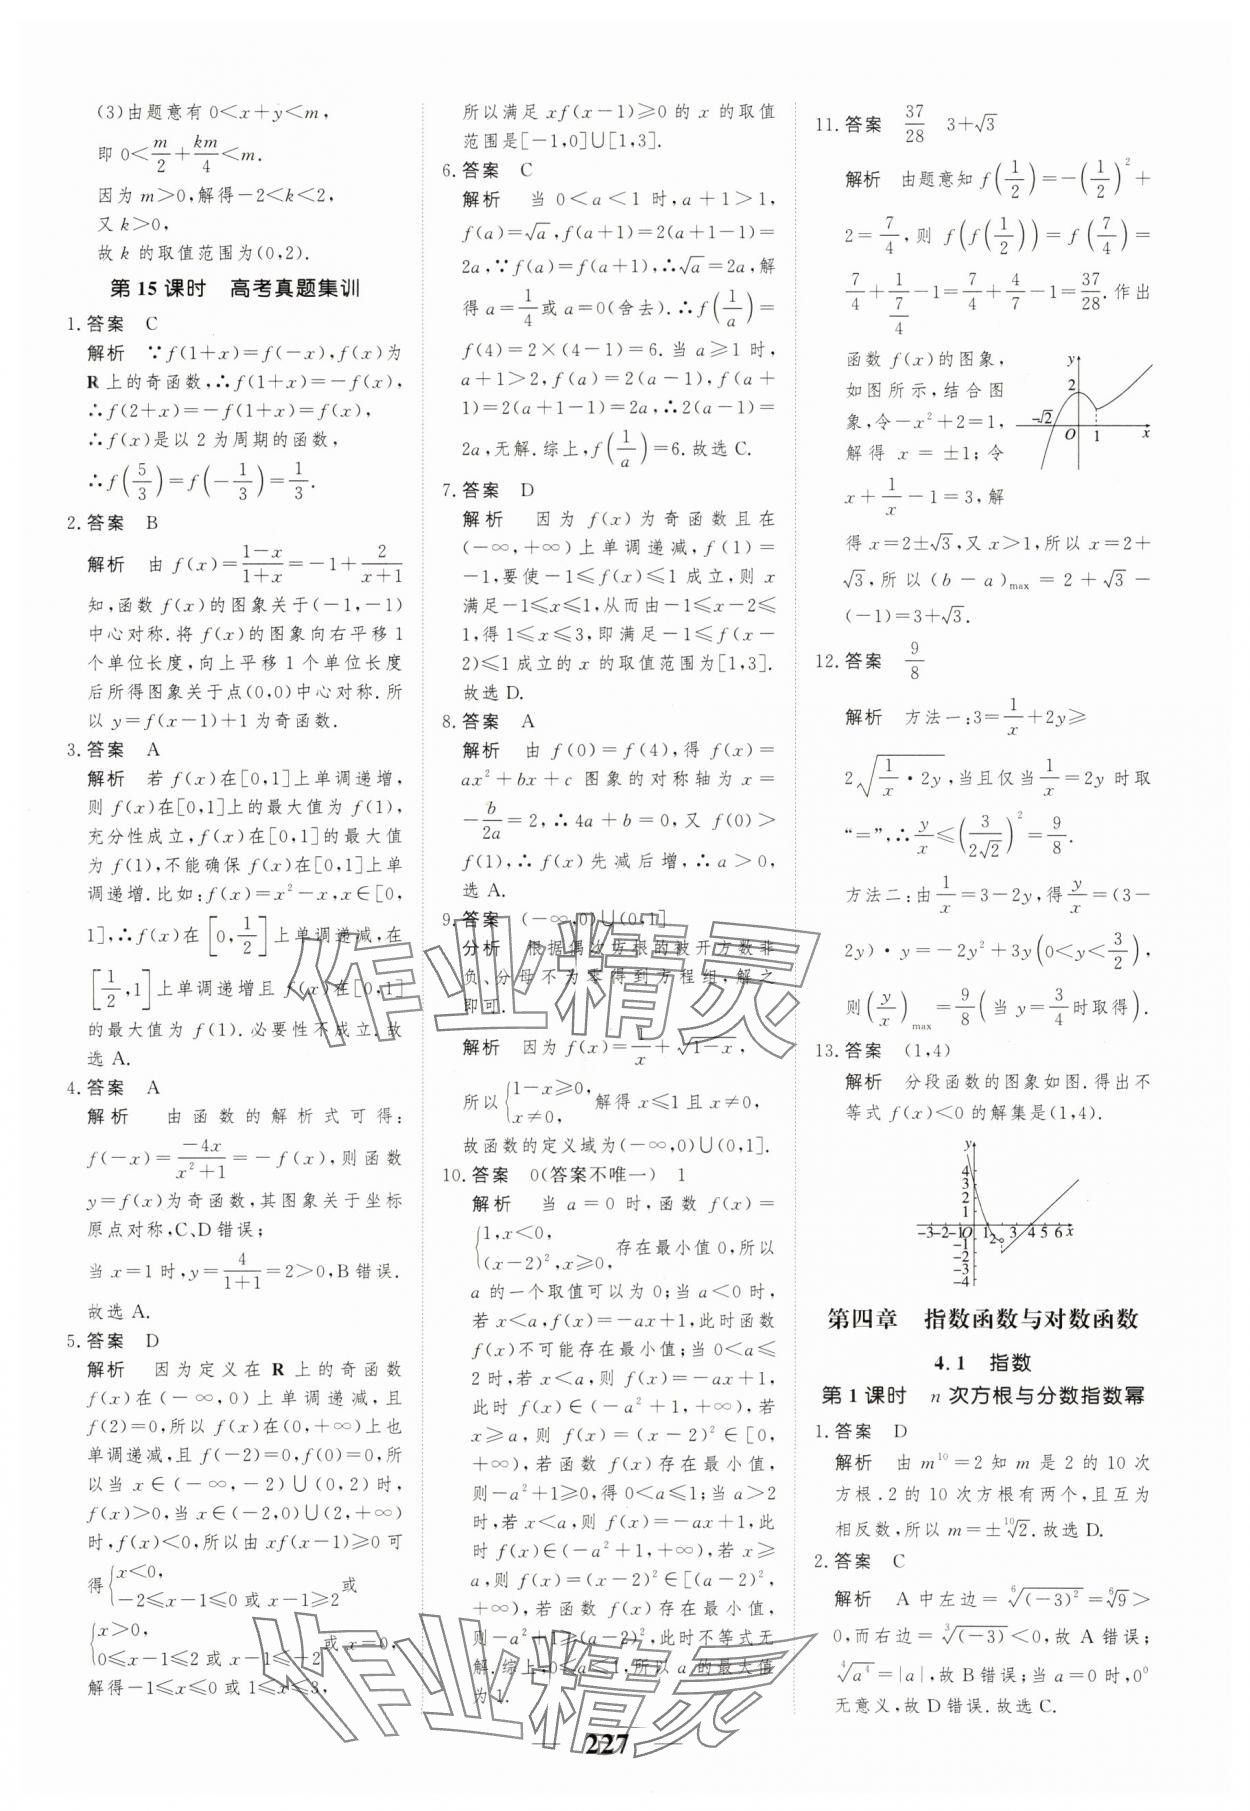 (3)由题意有 0<x+y<m,
即 0<m/2+km/4<m.
因为 m>0,解得-2<k<2,
又 k>0,
故 k 的取值范围为(0,2).
第 15 课时 高考真题集训
1. 答案 C
解析 ∵f(1+x)=f(-x),f(x)为
R 上的奇函数,∴f(1+x)=-f(x),
∴f(2+x)=-f(1+x)=f(x),
∴f(x)是以 2 为周期的函数,
∴f(5/3)=f(-1/3)=1/3.
2. 答案 B
解析 由 f(x)=(1-x)/(1+x)=-1+2/(x+1)
知,函数 f(x)的图象关于(-1,-1)
中心对称.将 f(x)的图象向右平移 1
个单位长度,向上平移 1 个单位长度
后所得图象关于点(0,0)中心对称.所
以 y=f(x-1)+1 为奇函数.
3. 答案 A
解析 若 f(x)在[0,1]上单调递增,
则 f(x)在[0,1]上的最大值为 f(1),
充分性成立,f(x)在[0,1]的最大值
为 f(1),不能确保 f(x)在[0,1]上单
调递增.比如:f(x)=x²-x,x∈[0,
1],∴f(x)在[0,1/2]上单调递减,在
[1/2,1]上单调递增且 f(x)在[0,1]
的最大值为 f(1).必要性不成立.故
选 A.
4. 答案 A
解析 由函数的解析式可得:
f(-x)=-4x/(x²+1)=-f(x),则函数
y=f(x)为奇函数,其图象关于坐标
原点对称,C、D 错误;
当 x=1 时,y=4/(1+1)=2>0,B 错误.
故选 A.
5. 答案 D
解析 因为定义在 R 上的奇函数
f(x)在(-∞,0)上单调递减,且
f(2)=0,所以 f(x)在(0,+∞)上也
单调递减,且 f(-2)=0,f(0)=0,所
以当 x∈(-∞,-2)∪(0,2)时,
f(x)>0,当 x∈(-2,0)∪(2,+∞)
时,f(x)<0,所以由 xf(x-1)≥0 可
得{x<0, -2≤x-1≤0 或 x-1≥2 或
{x>0, 0≤x-1≤2 或 x-1≤-2 或 x=0,
解得-1≤x≤0 或 1≤x≤3,
所以满足 xf(x-1)≥0 的 x 的取值
范围是[-1,0]∪[1,3].
6. 答案 C
解析 当 0<a<1 时,a+1>1,
f(a)=√a,f(a+1)=2(a+1-1)=
2a,∵f(a)=f(a+1),∴√a=2a,解
得 a=1/4或 a=0(舍去).∴f(1/a)=
f(4)=2×(4-1)=6.当 a≥1 时,
a+1>2,f(a)=2(a-1),f(a+
1)=2(a+1-1)=2a,∴2(a-1)=
2a,无解.综上,f(1/a)=6.故选 C.
7. 答案 D
解析 因为 f(x)为奇函数且在
(-∞,+∞)上单调递减,f(1)=
-1,要使-1≤f(x)≤1 成立,则 x
满足-1≤x≤1,从而由-1≤x-2≤
1,得 1≤x≤3,即满足-1≤f(x-
2)≤1 成立的 x 的取值范围为[1,3].
故选 D.
8. 答案 A
解析 由 f(0)=f(4),得 f(x)=
ax²+bx+c 图象的对称轴为 x=
-b/2a=2,∴4a+b=0,又 f(0)>
f(1),∴f(x)先减后增,∴a>0,
选 A.
9. 答案 (-∞,0)∪(0,1]
分析 根据偶次方根的被开方数非
负、分母不为零得到方程组,解之
即可.
解析 因为 f(x)=1/x+√(1-x),
所以{1-x≥0, x≠0, 解得 x≤1 且 x≠0,
故函数的定义域为(-∞,0)∪(0,1].
10. 答案 0(答案不唯一) 1
解析 当 a=0 时,函数 f(x)=
{1,x<0, (x-2)²,x≥0, 存在最小值 0,所以
a 的一个取值可以为 0;当 a<0 时,
若 x<a,则 f(x)=-ax+1,此时函数
f(x)不可能存在最小值;当 0<a≤
2 时,若 x<a,则 f(x)=-ax+1,
此时 f(x)∈(-a²+1,+∞),若
x≥a,则 f(x)=(x-2)²∈[0,
+∞),若函数 f(x)存在最小值,
则-a²+1≥0,得 0<a≤1;当 a>2
时,若 x<a,则 f(x)=-ax+1,此
时 f(x)∈(-a²+1,+∞),若 x≥
a,则 f(x)=(x-2)²∈[(a-2)²,
+∞),若函数 f(x)存在最小值,
则-a²+1≥(a-2)²,此时不等式无
解.综上,0≤a≤1,所以 a 的最大值
为 1.
11. 答案 37/28 3+√3
解析 由题意知 f(1/2)=-(1/2)²+
2=7/4,则 f(f(1/2))=f(7/4)=
7/4+1/(7/4)-1=7/4+4/7-1=37/28.作出
函数 f(x)的图象,
如图所示,结合图
象,令-x²+2=1,
解得 x=±1;令
x+1/x-1=3,解
y 2 -√2 O 1 x
得 x=2±√3,又 x>1,所以 x=2+
√3,所以(b-a)max=2+√3-
(-1)=3+√3.
12. 答案 9/8
解析 方法一:3=1/x+2y≥
2√(1/x·2y),当且仅当1/x=2y 时取
“=”,∴y/x≤(3/2√2)²=9/8.
方法二:由1/x=3-2y,得y/x=(3-
2y)·y=-2y²+3y(0<y<3/2),
则(y/x)max=9/8(当 y=3/4时取得).
13. 答案 (1,4)
解析 分段函数的图象如图.得出不
等式 f(x)<0 的解集是(1,4).
y 4 3 2 1 -3 -2 -1 O 1 2 3 4 5 6 x -1 -2 -3 -4
第四章 指数函数与对数函数
4.1 指数
第 1 课时 n 次方根与分数指数幂
1. 答案 D
解析 由 m¹⁰=2 知 m 是 2 的 10 次
方根.2 的 10 次方根有两个,且互为
相反数,所以 m=±¹⁰√2.故选 D.
2. 答案 C
解析 A 中左边=⁶√(-3)²=⁶√9>
0,而右边=³√(-3)<0,故 A 错误;
⁴√a⁴=|a|,故 B 错误;当 a=0 时,0⁰
无意义,故 D 错误.故选 C.
作业精灵
作业精灵
227